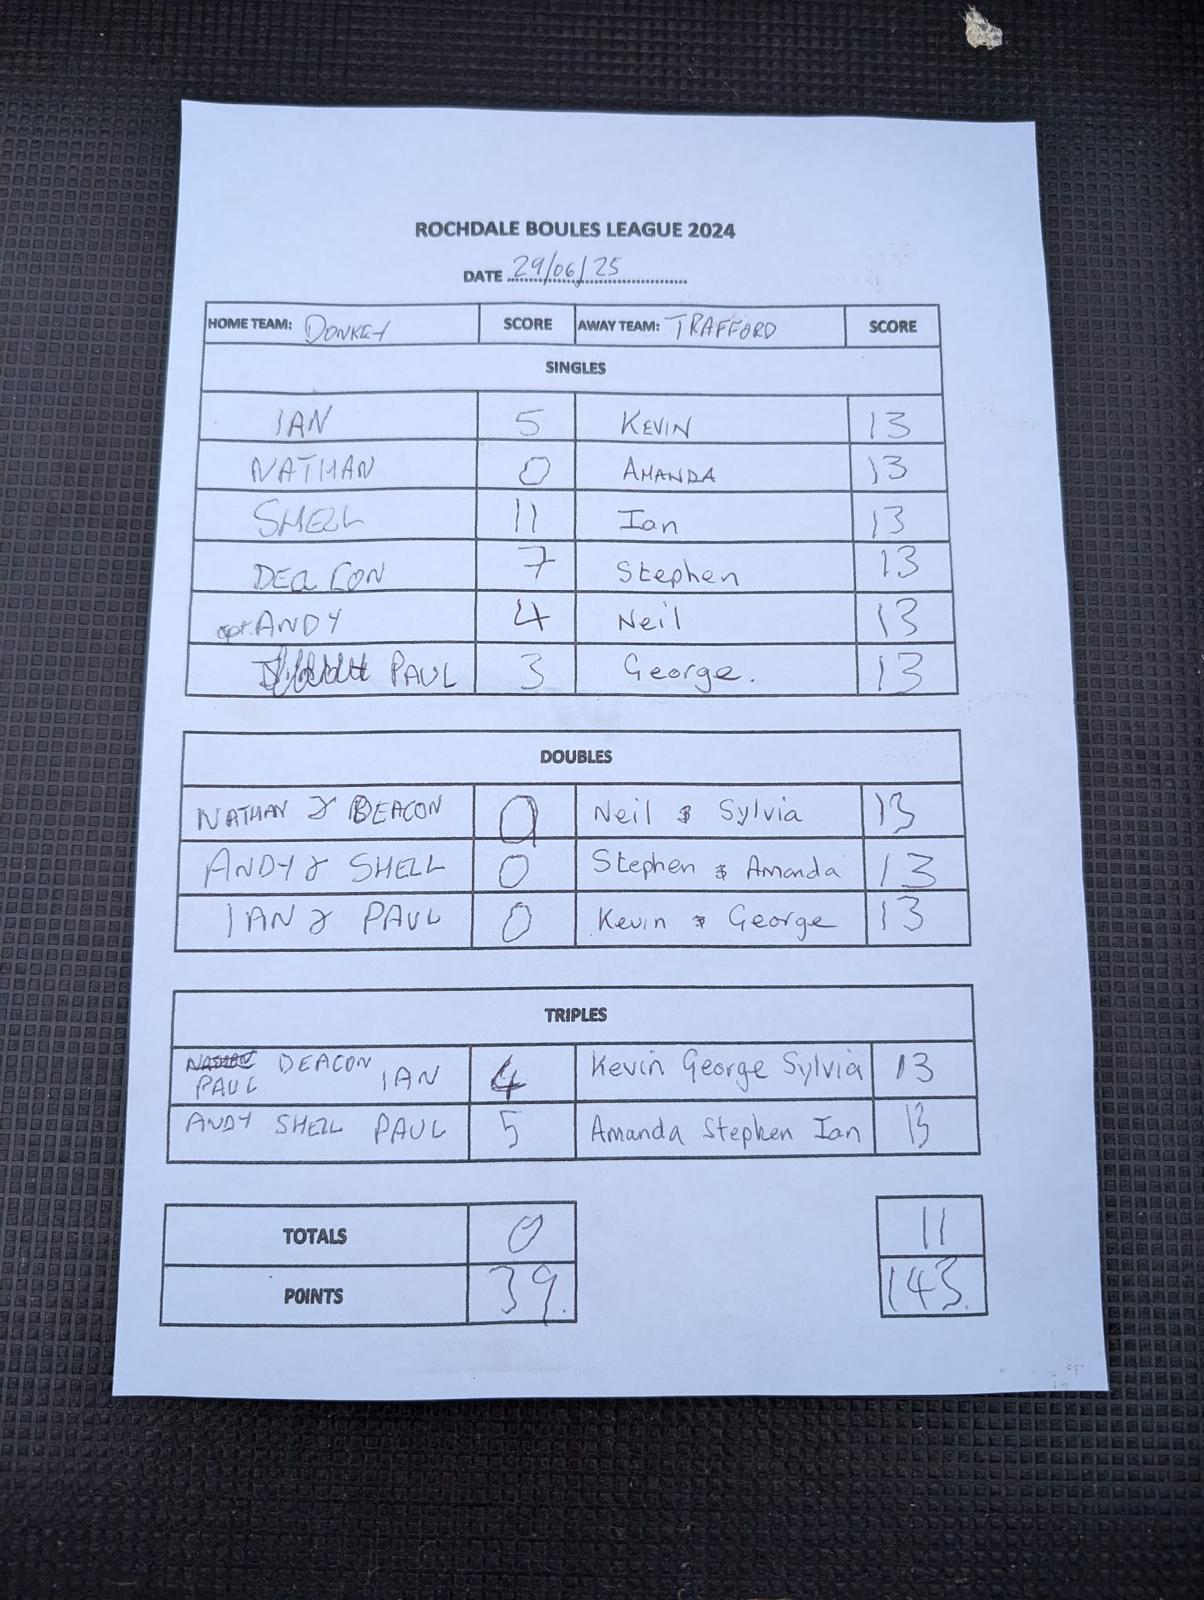 ROCHDALE BOULES LEAGUE 2024
DATE 29/06/25
HOME TEAM: DONKEY SCORE AWAY TEAM: TRAFFORD SCORE
SINGLES
IAN 5 KEVIN 13
NATHAN 0 AMANDA 13
SHELL 11 Ian 13
DEACON 7 Stephen 13
cpt. ANDY 4 Neil 13
PAUL 3 George. 13
DOUBLES
NATHAN & DEACON 0 Neil & Sylvia 13
ANDY & SHELL 0 Stephen & Amanda 13
IAN & PAUL 0 Kevin & George 13
TRIPLES
PAUL DEACON IAN 4 Kevin George Sylvia 13
ANDY SHELL PAUL 5 Amanda Stephen Ian 13
TOTALS 0 11
POINTS 39. 143.